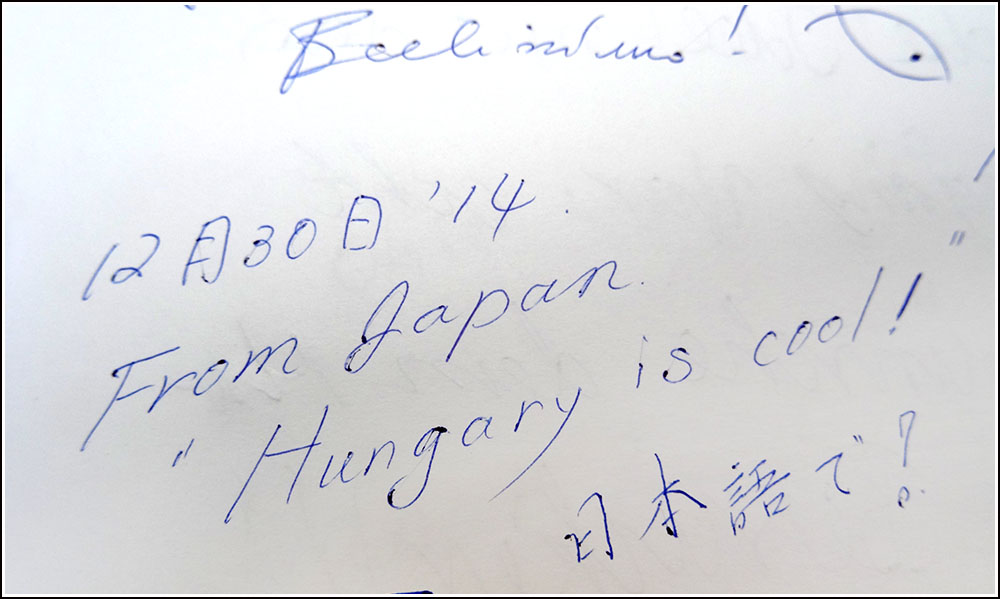 12月30日 '14.
From Japan.
" Hungary is cool! "
日本語で!